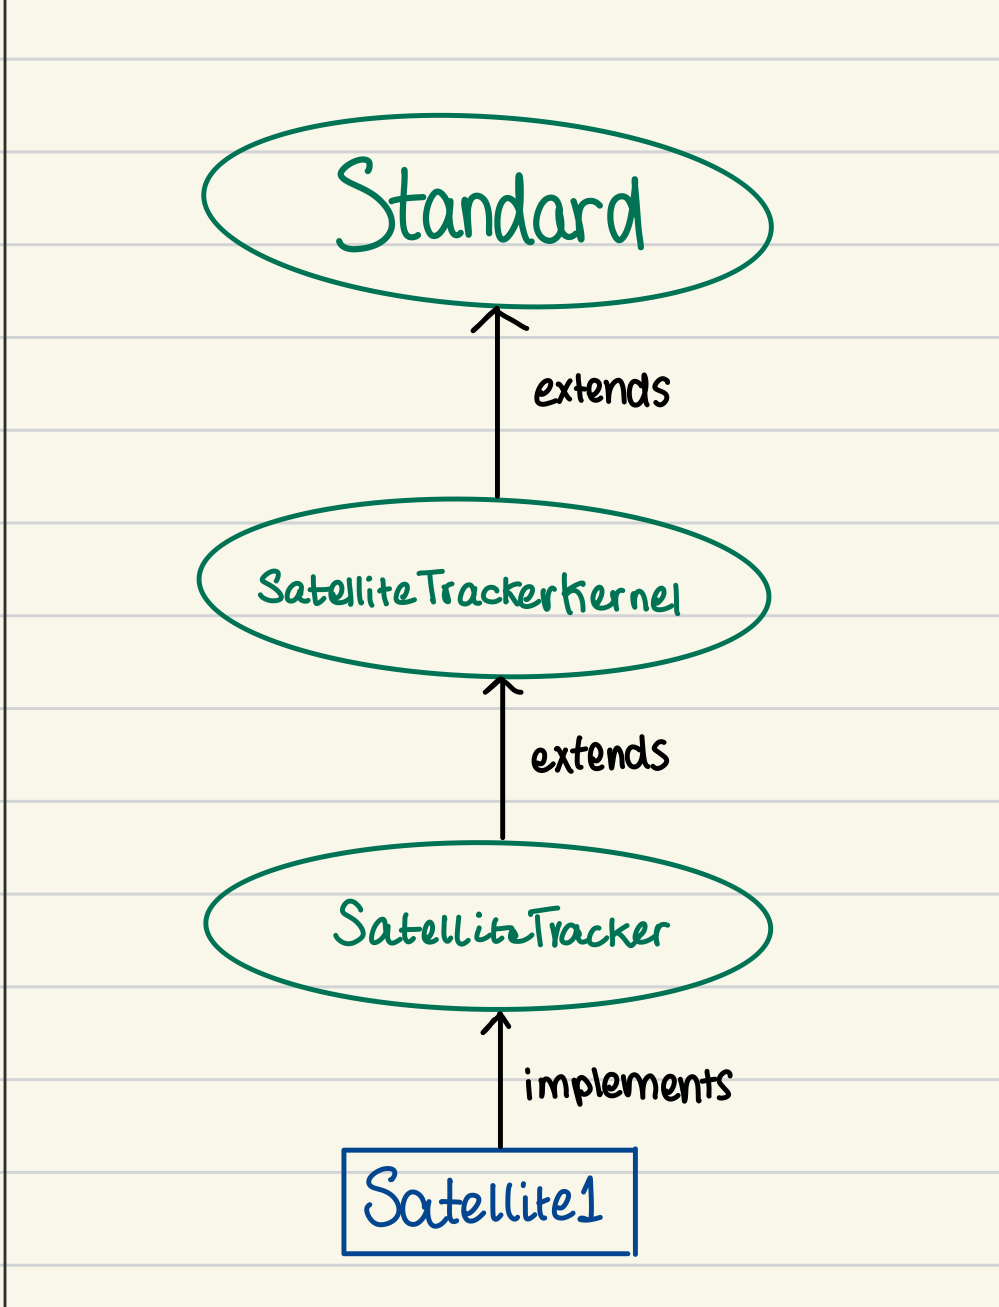 Standard
extends
SatelliteTrackerKernel
extends
SatelliteTracker
implements
Satellite1